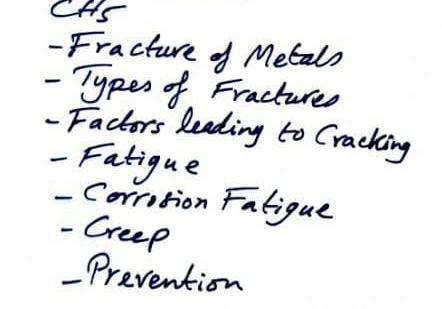 CH5
-Fracture of Metals
- Types of Fractures
- Factors leading to Cracking
- Fatigue
- Corrosion Fatigue
- Creep
- Prevention